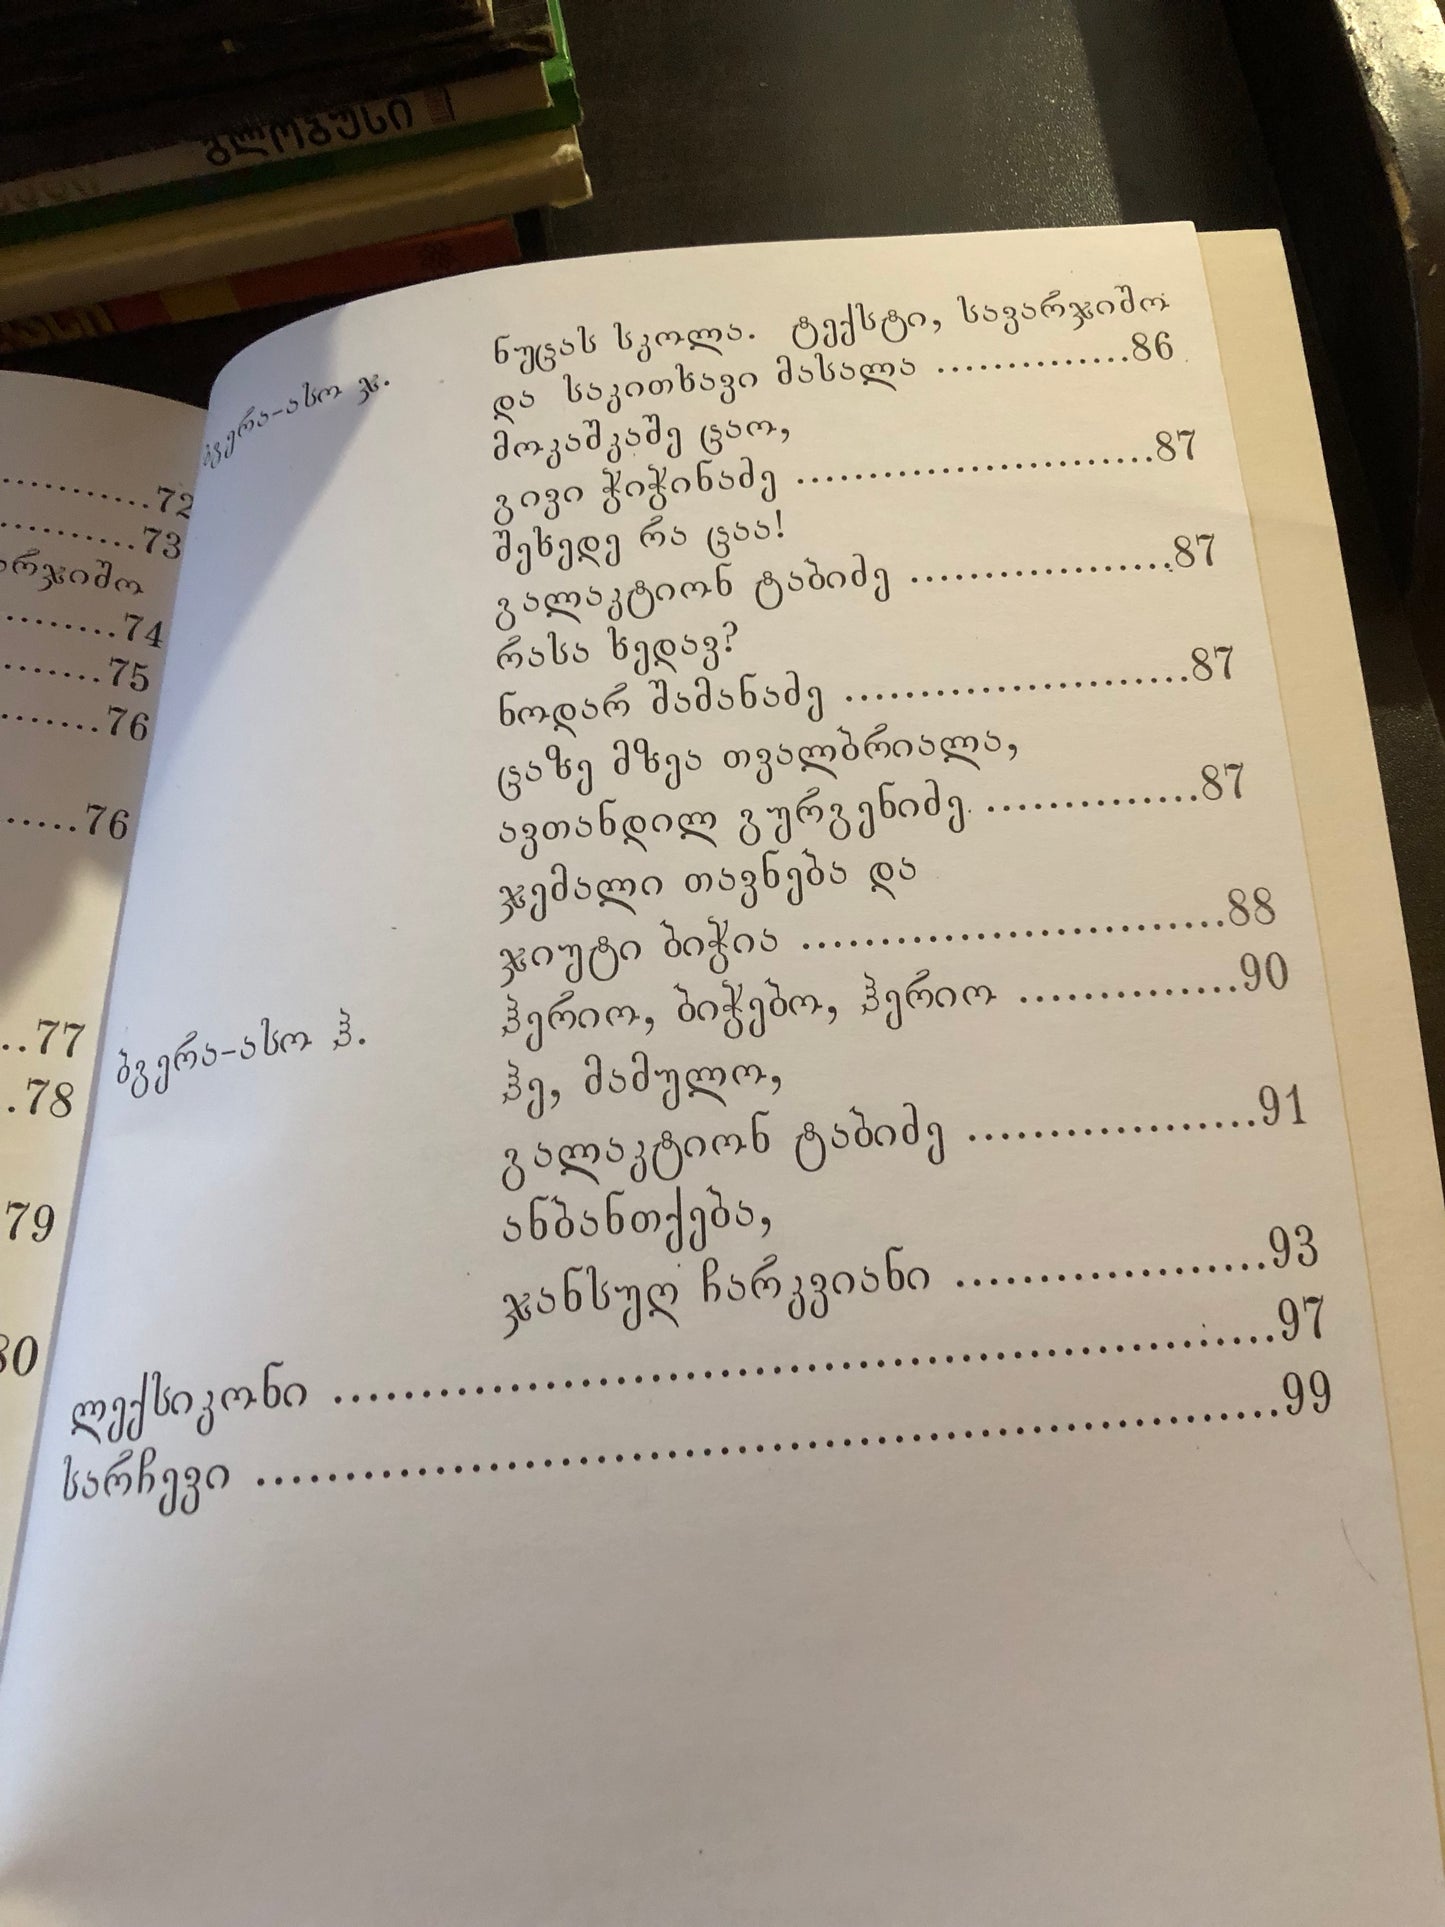 გლობუსი
72
73
74
75
76
76
77
78
79
80
ნუცას სკოლა. ტექსტი, სავარჯიშო
ბგერა-ასო ჯ. და საკითხავი მასალა ..............86
მოკაშკაშე ცაო,
გივი ჭიჭინაძე ........................87
შეხედე რა ცაა!
გალაკტიონ ტაბიძე ..................87
რასა ხედავ?
ნოდარ შამანაძე .......................87
ცაზე მზეა თვალბრიალა,
ავთანდილ გურგენიძე ...............87
ჯემალი თავნება და
ჯიუტი ბიჭია ............................88
ბგერა-ასო ჰ. ჰერიო, ბიჭებო, ჰერიო ...............90
ჰე, მამულო,
გალაკტიონ ტაბიძე ...................91
ანბანთქება,
ჯანსუღ ჩარკვიანი ....................93
ლექსიკონი ................................................................97
სარჩევი .....................................................................99